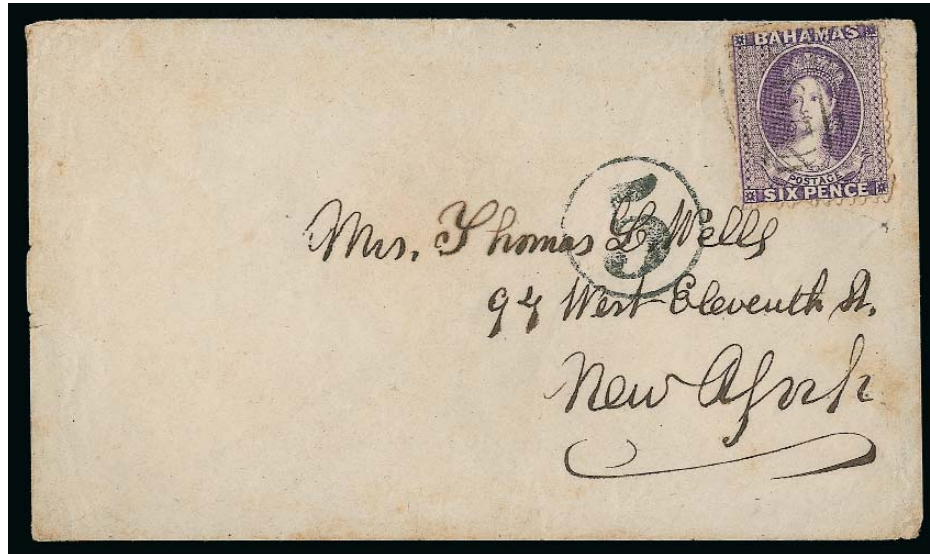 BAHAMAS
POSTAGE
SIX PENCE
5
Mrs. Thomas L. Wells
94 West Eleventh St.
New York